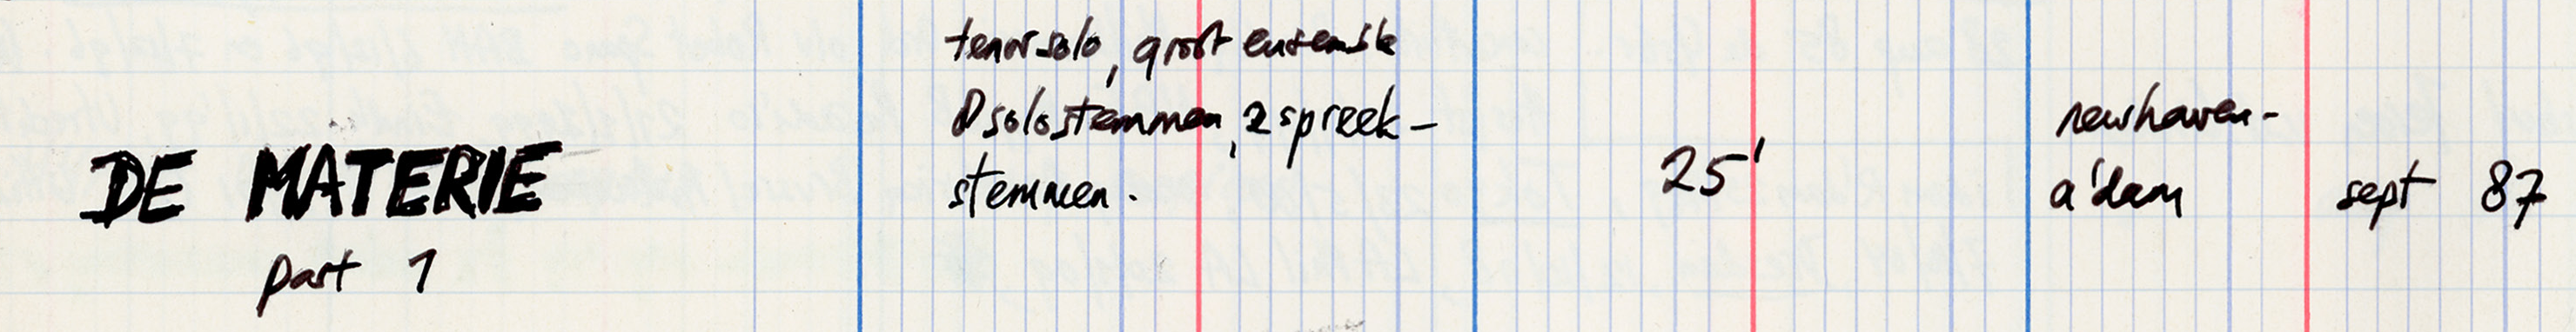 DE MATERIE
part 1
tenorsolo, groot ensemble
8 solostemmen, 2 spreek-
stemmen.
25'
newhaven-
a'dam
sept 87